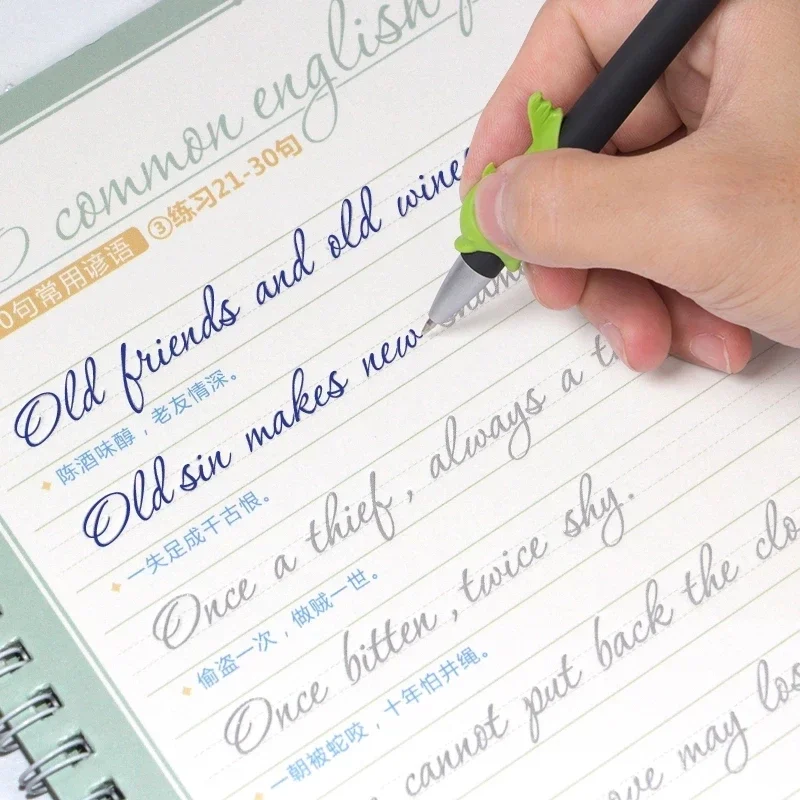 common english
③练习21-30句
0句常用谚语
Old friends and old wines
陈酒味醇，老友情深。
Old sin makes new sham
一失足成千古恨。
Once a thief, always a t
偷盗一次，做贼一世。
Once bitten, twice shy.
一朝被蛇咬，十年怕井绳。
cannot put back the clo
ove may los